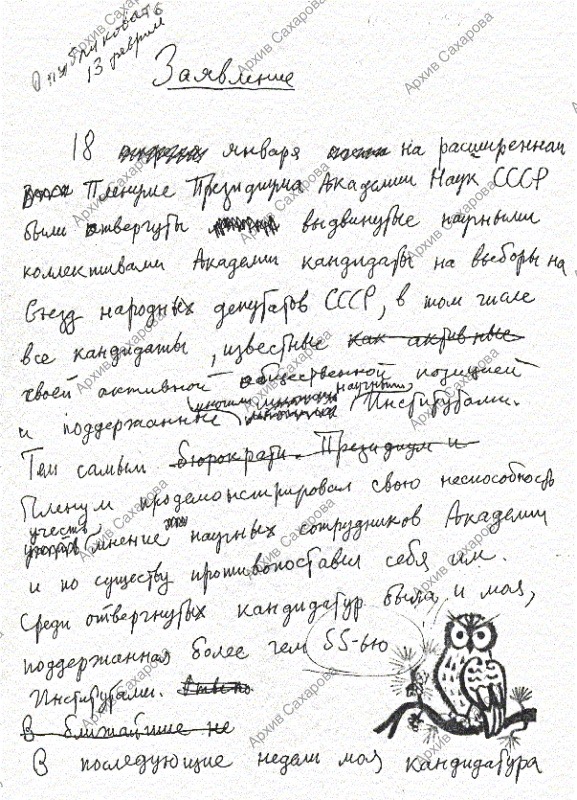 Опубликовать
13 февраля
Заявление
18 января на расширенном
Пленуме Президиума Академии Наук СССР
были отвергнуты выдвинутые научными
коллективами Академии кандидаты на выборы на
Съезд народных депутатов СССР, в том числе
все кандидаты, известные как активные
своей активной общественной позицией
и поддержанные многими научными Институтами.
Тем самым бюрократи. Президиум и
Пленум продемонстрировал свою неспособность
учесть мнение научных сотрудников Академии
и по существу противопоставил себя им.
Среди отвергнутых кандидатур была и моя,
поддержанная более чем 55-ью
Институтами.
В ближайшие не
В последующие недели моя кандидатура
Архив Сахарова